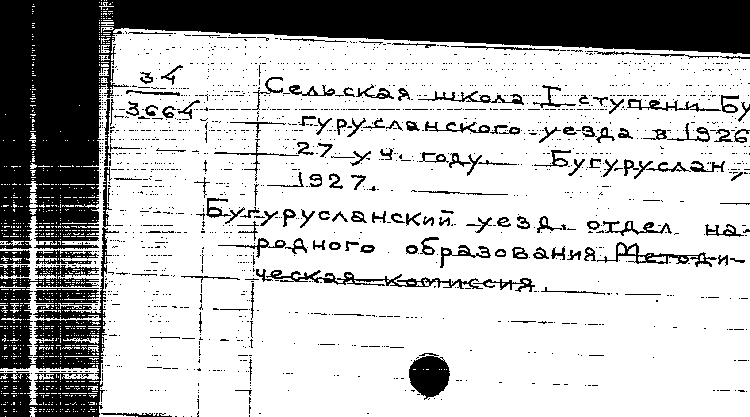 34
3664
Сельская школа I ступени Бу
гурусланского уезда в 1926
27 уч. году. Бугуруслан,
1927.
Бугурусланский уезд. отдел на-
родного образования. Методи-
ческая комиссия.